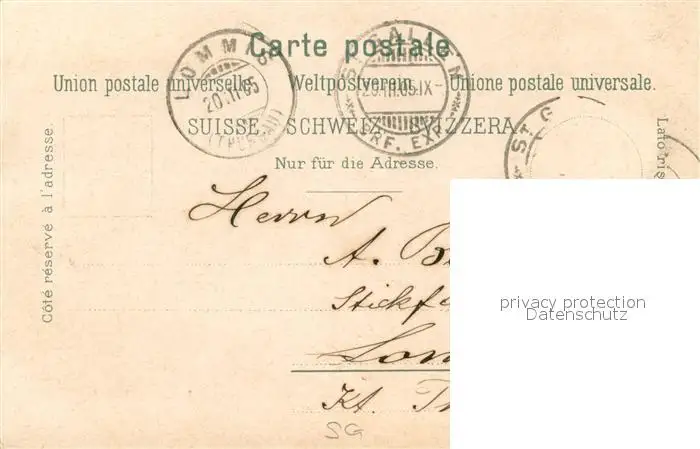 Carte postale
Union postale universelle. Weltpostverein. Unione postale universale.
SUISSE. SCHWEIZ. SVIZZERA.
Nur für die Adresse.
Côté réservé à l'adresse.
Lato ris
LOMMIS
20.II.05
(THURGAU)
ST. GALLEN
20.III.05.IX-
BRF. EXP.
ST. G
Herrn
A. B
Stickf
Lom
Kt. Th
SG
privacy protection
Datenschutz